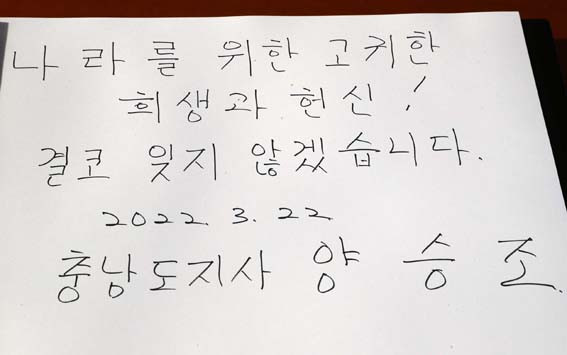 나라를 위한 고귀한
희생과 헌신!
결코 잊지 않겠습니다.
2022. 3. 22
충남도지사 양승조.